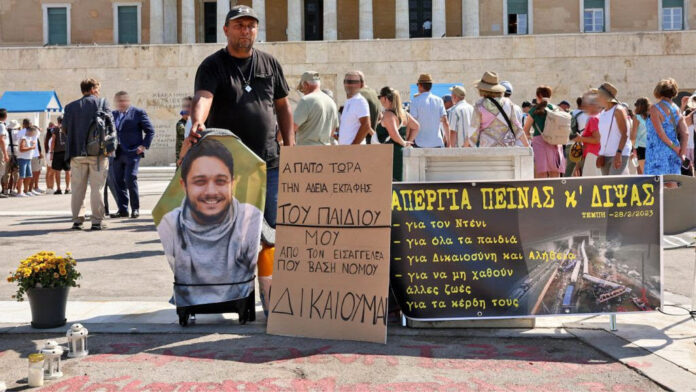 ΑΠΑΙΤΩ ΤΩΡΑ
ΤΗΝ ΑΔΕΙΑ ΕΚΤΑΦΗΣ
ΤΟΥ ΠΑΙΔΙΟΥ
ΜΟΥ
ΑΠΟ ΤΟΝ ΕΙΣΑΓΓΕΛΕΑ
ΠΟΥ ΒΑΣΗ ΝΟΜΟΥ
ΔΙΚΑΙΟΥΜΑΙ
ΑΠΕΡΓΙΑ ΠΕΙΝΑΣ κ' ΔΙΨΑΣ
ΤΕΜΠΗ -28/2/2023
- για τον Ντένι
- για όλα τα παιδιά
- για Δικαιοσύνη και Αλήθεια
- για να μη χαθούν
άλλες ζωές
- για τα κέρδη τους